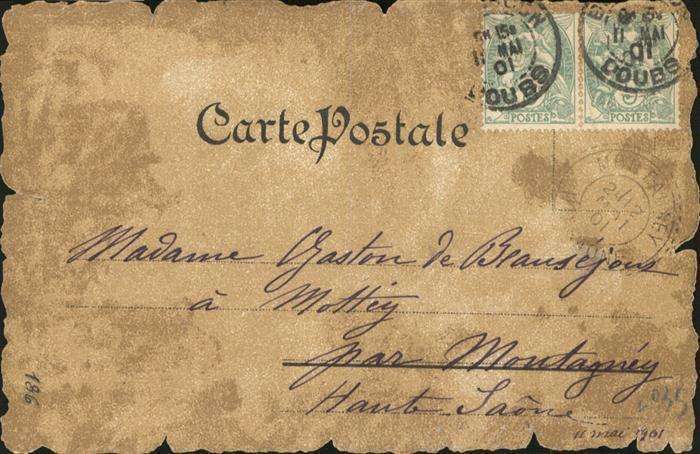 DOUBS
11 MAI
01
DOUBS
11 MAI
01
POSTES
POSTES
Carte Postale
Madame Gaston de Beauséjour
à Mottey
par Montagney
Haute Saône
186
11 mai 1901